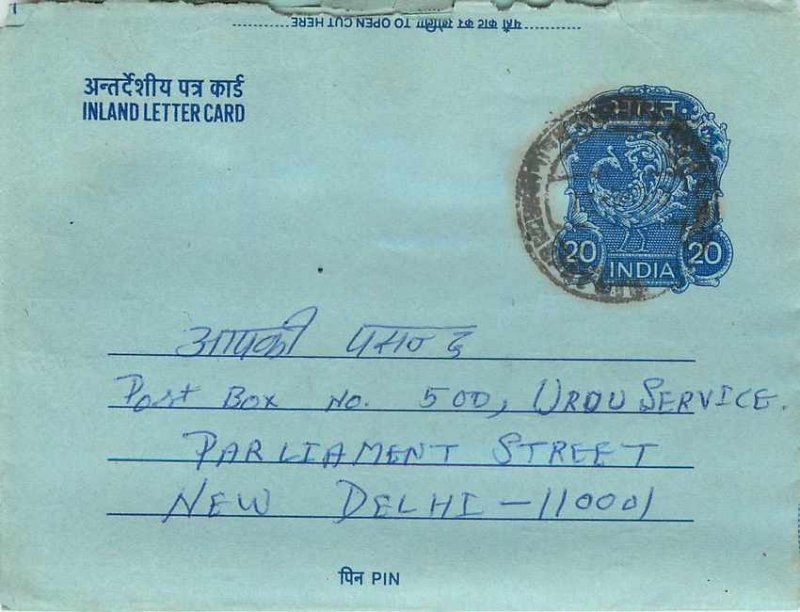 यहाँ काट कर खोलिए TO OPEN CUT HERE
अन्तर्देशीय पत्र कार्ड
INLAND LETTER CARD
भारत
20 20
INDIA
आपकी पसन्द
Post Box No. 500, URDU SERVICE.
PARLIAMENT STREET
NEW DELHI - 110001
पिन PIN